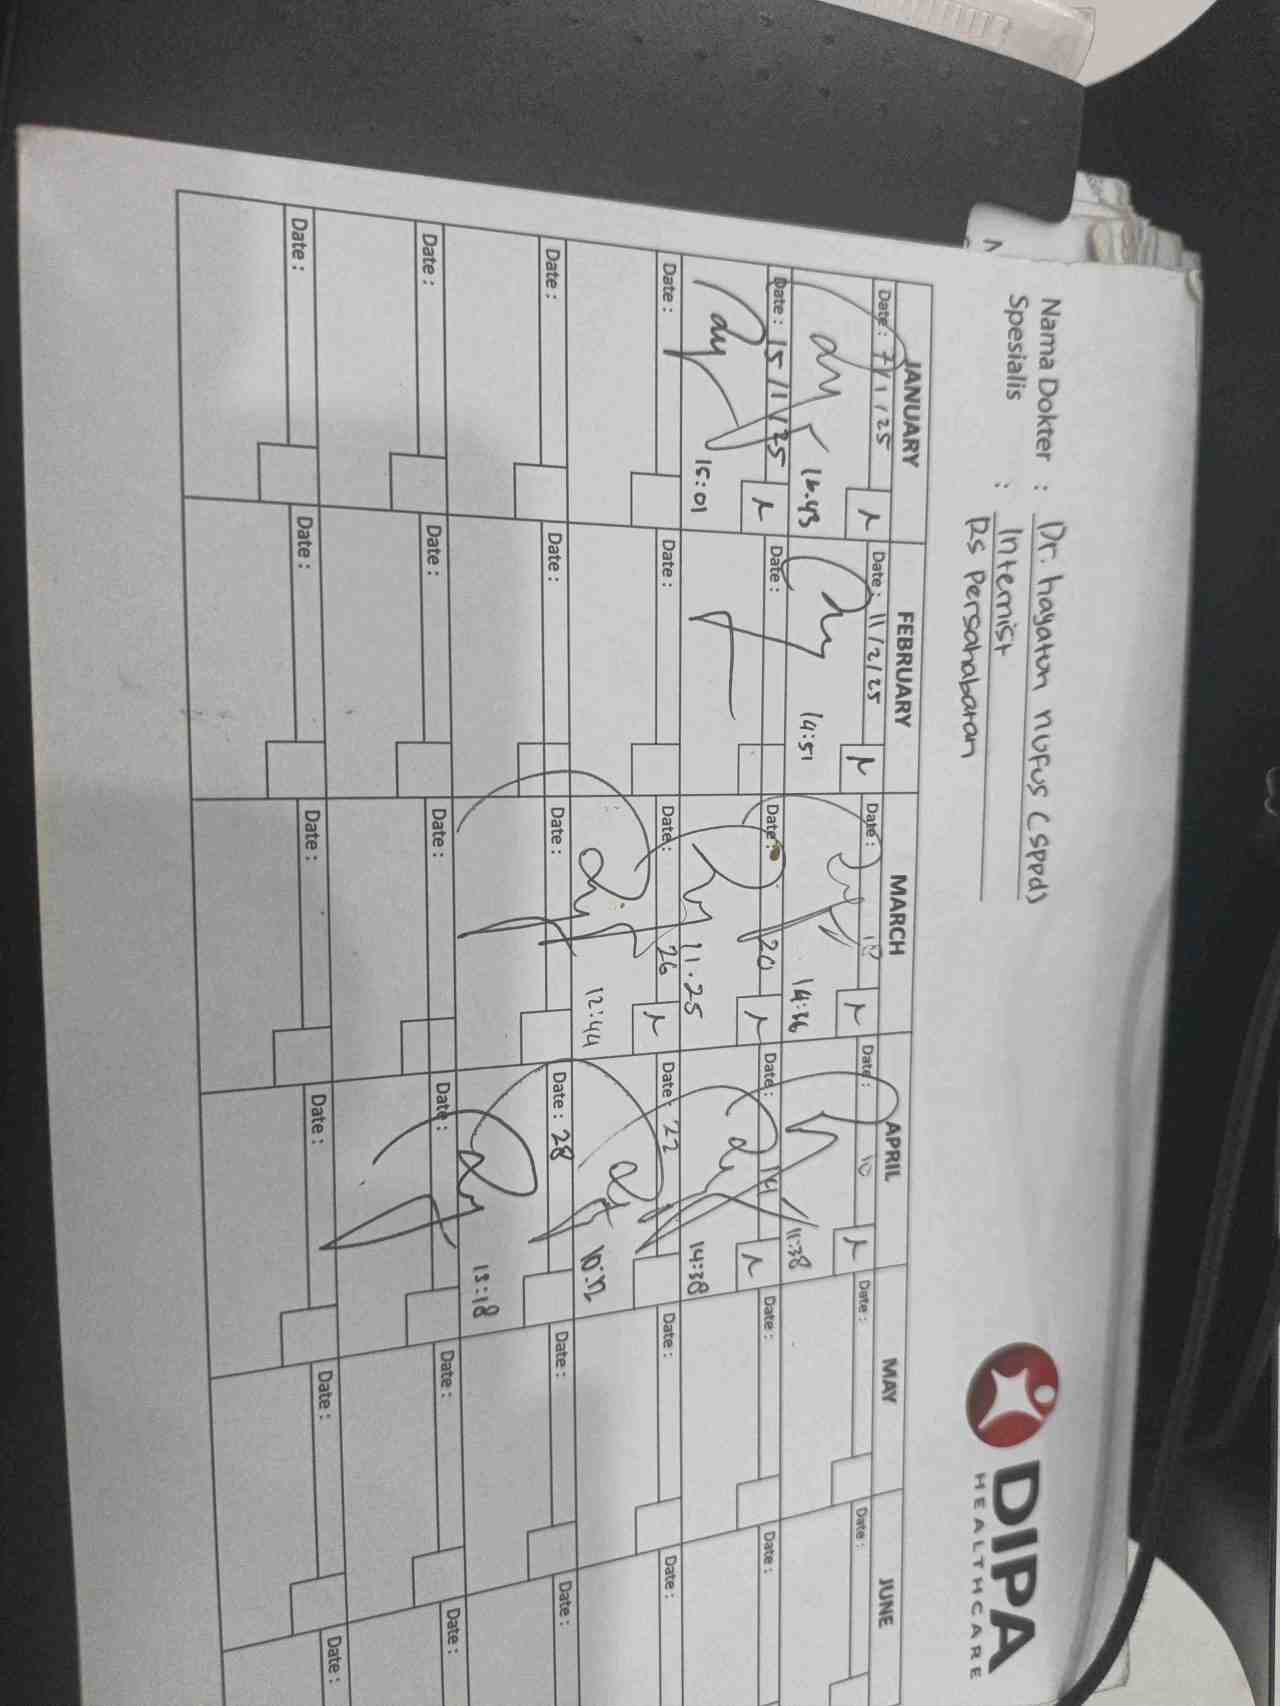 DIPA
HEALTHCARE
Nama Dokter : Dr. hayatun nufus (sppd)
Spesialis : Internist
RS Persahabatan
JANUARY FEBRUARY MARCH APRIL MAY JUNE
Date : 7/1/25 Date : 11/2/25 Date : 10 Date : 10 Date : Date :
16.43 14:51 14:36 11:38
Date : 15/1/25 Date : Date : 20 Date : 14 Date : Date :
15:01 11.25 14:38
Date : Date : Date : 26 Date : 22 Date : Date :
12:44
Date : Date : Date : Date : 28 Date : Date :
13:18
Date : Date : Date : Date : Date : Date :
Date : Date : Date : Date : Date : Date :